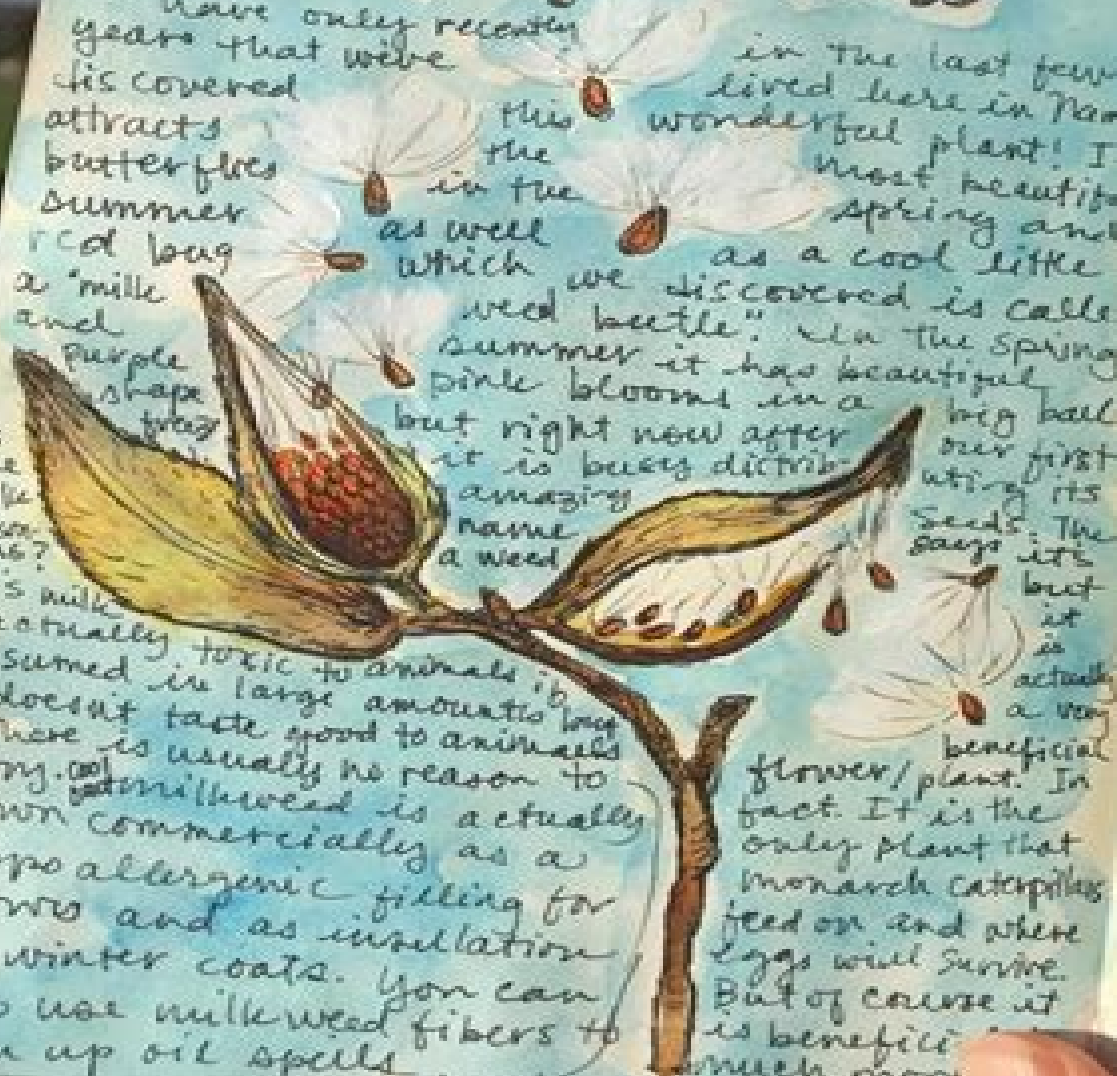 have only recently
years that we've in the last few
discovered lived here in
attracts this wonderful plant! I
butterflies the most beautif
summer in the spring and
red bug as well as a cool little
a "milk which we discovered is calle
and weed beetle". In the spring
purple summer it has beautiful
shape pink blooms in a big ball
but right now after our first
it is busy distrib- uting its
amazing seeds. The
name says it's
a weed but
it
is
actually
a very
beneficial
flower/plant. In
fact. It is the
only plant that
monarch caterpillars
feed on and where
eggs will survive.
But of course it
is benefici
much
's milk
actually toxic to animals if
sumed in large amounts but
doesn't taste good to animals
there is usually no reason to
ng. cool milkweed is actually
wn commercially as a
po allergenic filling for
ows and as insullation
winter coats. You can
o use milkweed fibers to
n up oil spells